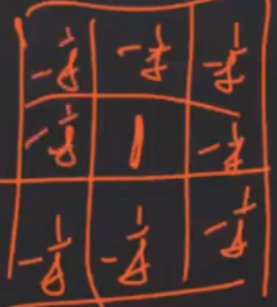 -1/8 -1/8 -1/8
-1/8 1 -1/8
-1/8 -1/8 -1/8